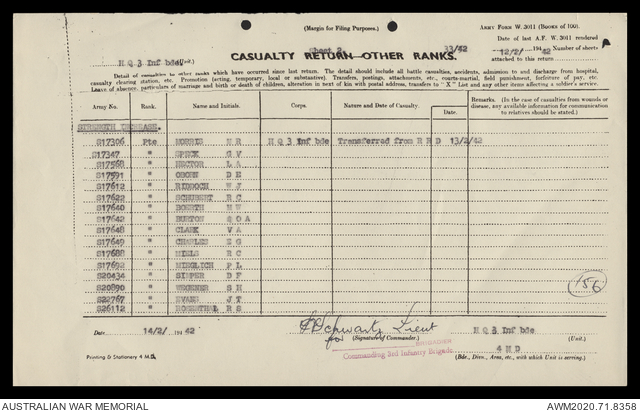 (Margin for Filing Purposes.)
ARMY FORM W. 3011 (Books of 100).
Date of last A.F. W.3011 rendered
Sheet 2.
33/42
12/2/ 194 42 Number of sheets
attached to this return
H Q 3 Inf bde (Unit.)
CASUALTY RETURN—OTHER RANKS.
Detail of casualties to other ranks which have occurred since last return. The detail should include all battle casualties, accidents, admission to and discharge from hospital,
casualty clearing station, etc. Promotion (acting, temporary, local or substantive). Transfers, postings, attachments, etc., courts-martial, field punishment, forfeiture of pay, etc.
Leave of absence, particulars of marriage and birth or death of children, alteration in next of kin with postal address, transfers to "X" List and any other items affecting a soldier's service.
Army No. Rank. Name and Initials. Corps. Nature and Date of Casualty. Date. Remarks. (In the case of casualties from wounds or disease, any available information for communication to relatives should be stated.)
STRENGTH INCREASE.
S17306 Pte MORRIS N R H Q 3 Inf bde Transferred from R R D 13/2/42
S17347 " G V
S17568 " HECTOR L A
S17591 " OBORN D E
S17612 " RIDDOCH W J
S17622 " SCHUBERT R C
S17640 " H W
S17642 " BURTON S O A
S17648 " CLARK V A
S17649 " CHARLES E G
S17688 " R C
S17692 " P L
S20434 " D F
S20890 " S H
S22767 " EVANS J T
S26112 " ROSENTHAL R S
156
Date 14/2/ 194 42
Schwartz Lieut
for (Signature of Commander.)
BRIGADIER
Commanding 3rd Infantry Brigade
H Q 3 Inf bde
(Unit.)
4 M D
(Bde., Divn., Area, etc., with which Unit is serving.)
Printing & Stationery 4 M.D.
AUSTRALIAN WAR MEMORIAL
AWM2020.71.8358